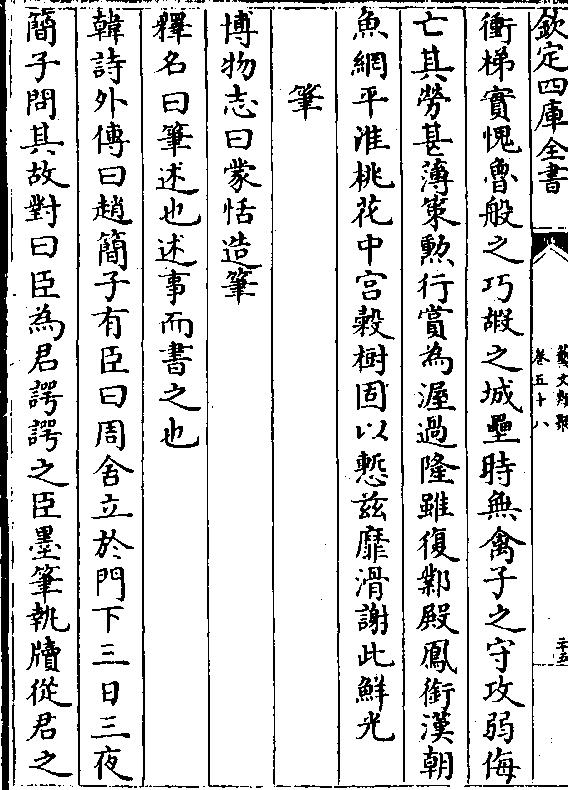 欽定四庫全書
藝文類聚
卷五十八
二十五
衝梯實愧魯般之巧嘏之城壘時無禽子之守攻弱侮
亡其勞甚薄策勲行賞為渥過隆雖復鄴殿鳳銜漢朝
魚網平淮桃花中宫榖樹固以慙兹靡滑謝此鮮光
筆
博物志曰蒙恬造筆
釋名曰筆述也述事而書之也
韓詩外傳曰趙簡子有臣曰周舍立於門下三日三夜
簡子問其故對曰臣為君諤諤之臣墨筆執牘從君之